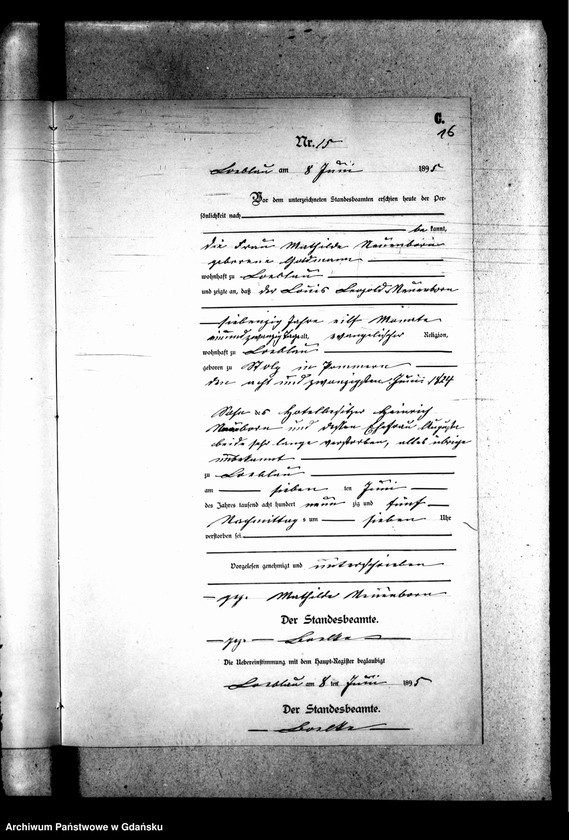 C.
16
Nr. 15
Loeblau am 8 Juni 1895
Vor dem unterzeichneten Standesbeamten erschien heute der Per-
sönlichkeit nach
be kannt,
die Frau Mathilde Neuenborn
geborene Goldmann
wohnhaft zu Loeblau
und zeigte an, daß der Louis Leopold Neuenborn
siebenzig Jahre eilf Monate
einundzwanzig Tage alt, evangelischer Religion,
wohnhaft zu Loeblau
geboren zu Stolp in Pommern
den acht und zwanzigsten Juni 1824
Sohn des Hotelbesitzer Heinrich
Neuenborn und dessen Ehefrau Auguste
beide sehr lange verstorben, alles übrige
unbekannt
zu Loeblau
am sieben ten Juni
des Jahres tausend acht hundert neun zig und fünf
Nachmittag s um sieben Uhr
verstorben sei.
Vorgelesen genehmigt und unterschrieben
gez. Mathilde Neuenborn
Der Standesbeamte.
gez.
Die Uebereinstimmung mit dem Haupt-Register beglaubigt
Loeblau am 8 ten Juni 1895
Der Standesbeamte.
Archiwum Państwowe w Gdańsku